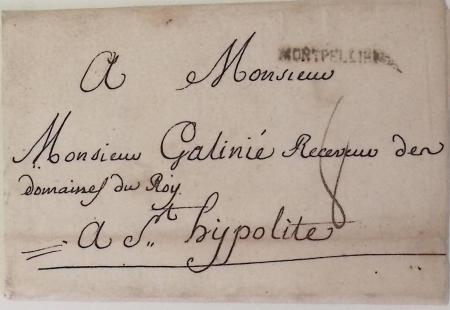 MONTPELLIER
A Monsieur
Monsieur Galinié Receveur des
domaines du Roy
8
a St hypolite